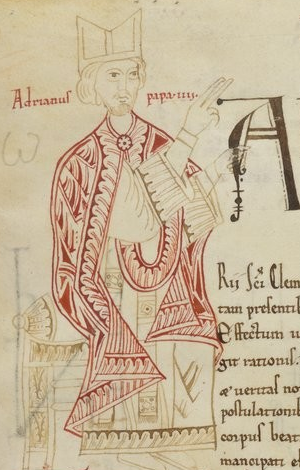 Adrianus papa·iiii·
A
Rii sc̄i Clem
tam presenti
Effectum u
git rationis.
æ ueritas no
postulation
corpus beat
mancipati et